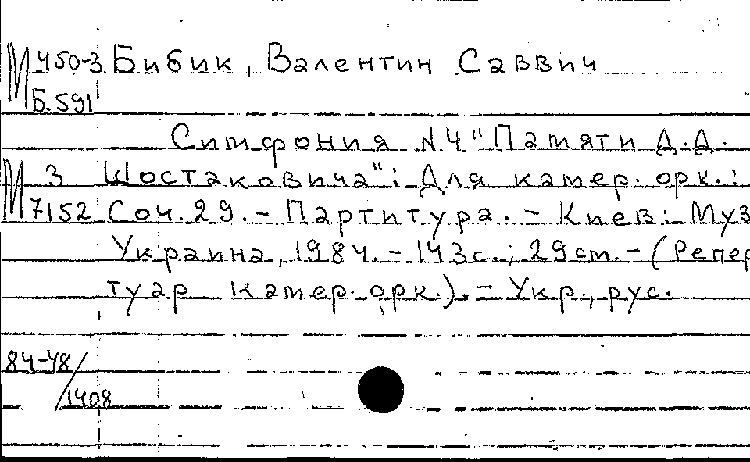 М 450-3 Бибик, Валентин Саввич
Б.591
Симфония N.4 "Памяти Д.Д.
М 3 Шостаковича": Для камер. орк.:
7152 Соч. 29. - Партитура. - Киев: Муз
Украина, 1984. - 143с.; 29см. - (Репер
туар камер.орк.). - Укр., рус.
84-48/
1408